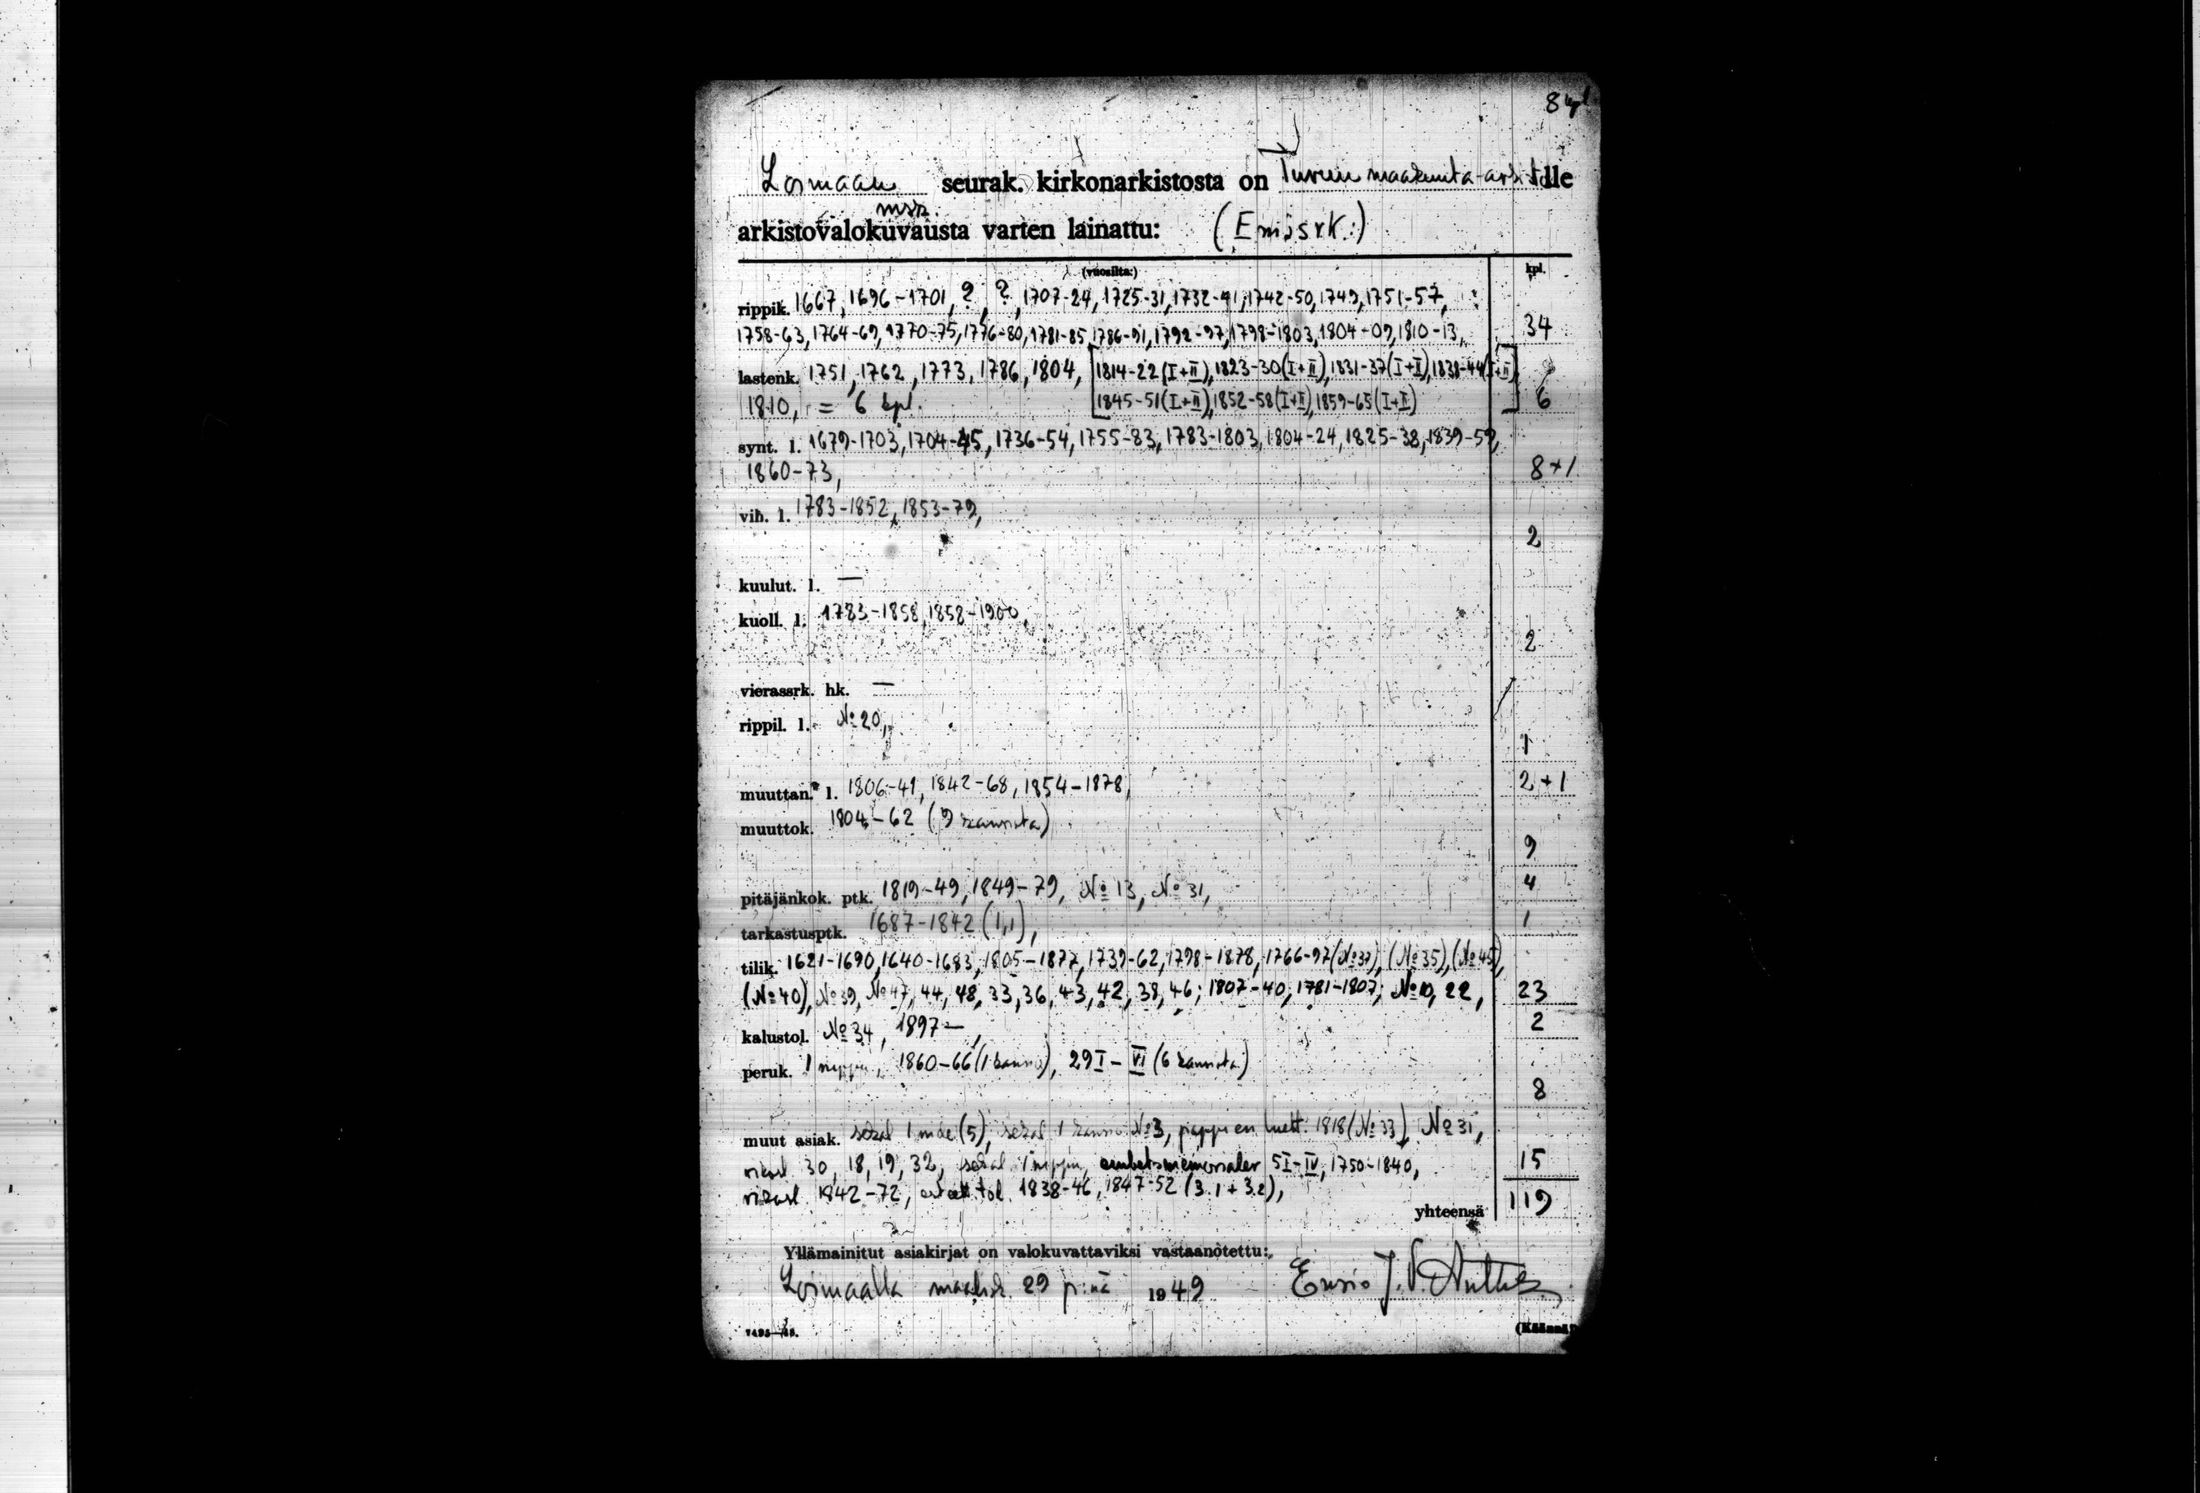 8 kpl
Loimaan seurak. kirkonarkistosta on Turun maakunta-arkistolle
msk.
arkistovalokuvausta varten lainattu: (Emäsrk.)
(vuosilta:) kpl.
rippik. 1667, 1696-1701, ?, ?, 1707-24, 1725-31, 1732-41, 1742-50, 1749, 1751-57,
1758-63, 1764-69, 1770-75, 1776-80, 1781-85, 1786-91, 1792-97, 1798-1803, 1804-09, 1810-13, 34
lastenk. 1751, 1762, 1773, 1786, 1804, [1814-22 (I+II), 1823-30 (I+II), 1831-37 (I+II), 1838-44 (I+II),
1810, = 6 kpl. 1845-51 (I+II), 1852-58 (I+II), 1859-65 (I+II)] 6
synt. l. 1679-1703, 1704-45, 1736-54, 1755-83, 1783-1803, 1804-24, 1825-38, 1839-59,
1860-73, 8+1
vih. l. 1783-1852, 1853-79,
2
kuulut. l. —
kuoll. l. 1783-1858, 1858-1900,
2
vierassrk. hk. —
rippil. l. № 20,
1
muuttan. l. 1806-41, 1842-68, 1854-1878, 2+1
muuttok. 1804-62 (9 kannsta)
9
pitäjänkok. ptk. 1819-49, 1849-79, № 13, № 31, 4
tarkastusptk. 1687-1842 (1,1), 1
tilik. 1621-1690, 1640-1683, 1805-1877, 1739-62, 1798-1878, 1766-97 (№ 37), (№ 35), (№ 45),
(№ 40), № 39, № 47, 44, 48, 33, 36, 43, 42, 38, 46; 1807-40, 1781-1807; № 10, 22, 23
kalustol. № 34, 1897-, 2
peruk. 1 nippu, 1860-66 (1 kanns), 29 I-VI (6 kannsta)
8
muut asiak. sekal 1 nide (5), sekal 1 kanns № 3, pappien luett. 1818 (№ 33), № 31,
30, 18, 19, 32, sekal 1 nippu, embetsmemorialer 5 I-IV, 1750-1840, 15
1842-72, 1838-46, 1847-52 (3.1+3.2),
yhteensä 119
Yllämainitut asiakirjat on valokuvattaviksi vastaanotettu:
Loimaalla maalisk. 29 p:nä 1949 Ensio J.
(Käännä!)